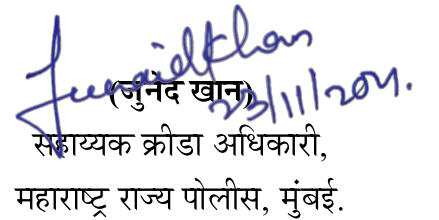 Junaid Khan
(जुनेद खान)
23/11/2021.
सहाय्यक क्रीडा अधिकारी,
महाराष्ट्र राज्य पोलीस, मुंबई.